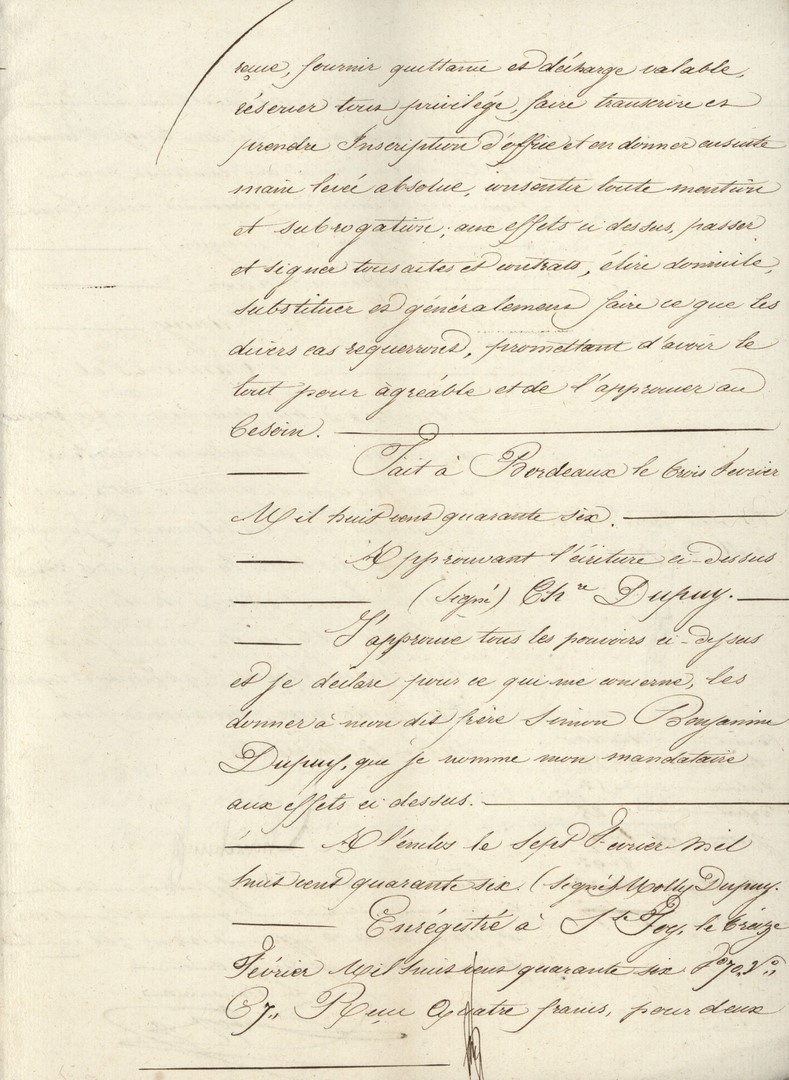 reçue, fournir quittance et décharge valable,
réserver tous privilége, faire transcrire et
prendre Inscription d'office et en donner ensuite
main levée absolue, consentir toute mention
et subrogation; aux effets ci dessus, passer
et signer tous actes et contrats, élire domicile,
substituer et généralement faire ce que les
divers cas requerront, promettant d'avoir le
tout pour agréable et de l'approuver au
besoin.
Fait à Bordeaux le trois février
Mil huit cent quarante six.
Approuvant l'écriture ci-dessus
(signé) Ch.re Dupuy.
J'approuve tous les pouvoirs ci-dessus
et je déclare pour ce qui me concerne, les
donner à mon dit frère Simon Benjamine
Dupuy, que je nomme mon mandataire
aux effets ci dessus.
A l'enclos le sept Février mil
huit cent quarante six (signé) Molly Dupuy.
Enrégistré à S.te Foy, le treize
Février Mil huit cent quarante six f.o 70. V.o,
C 7,, Reçu Quatre francs, pour deux